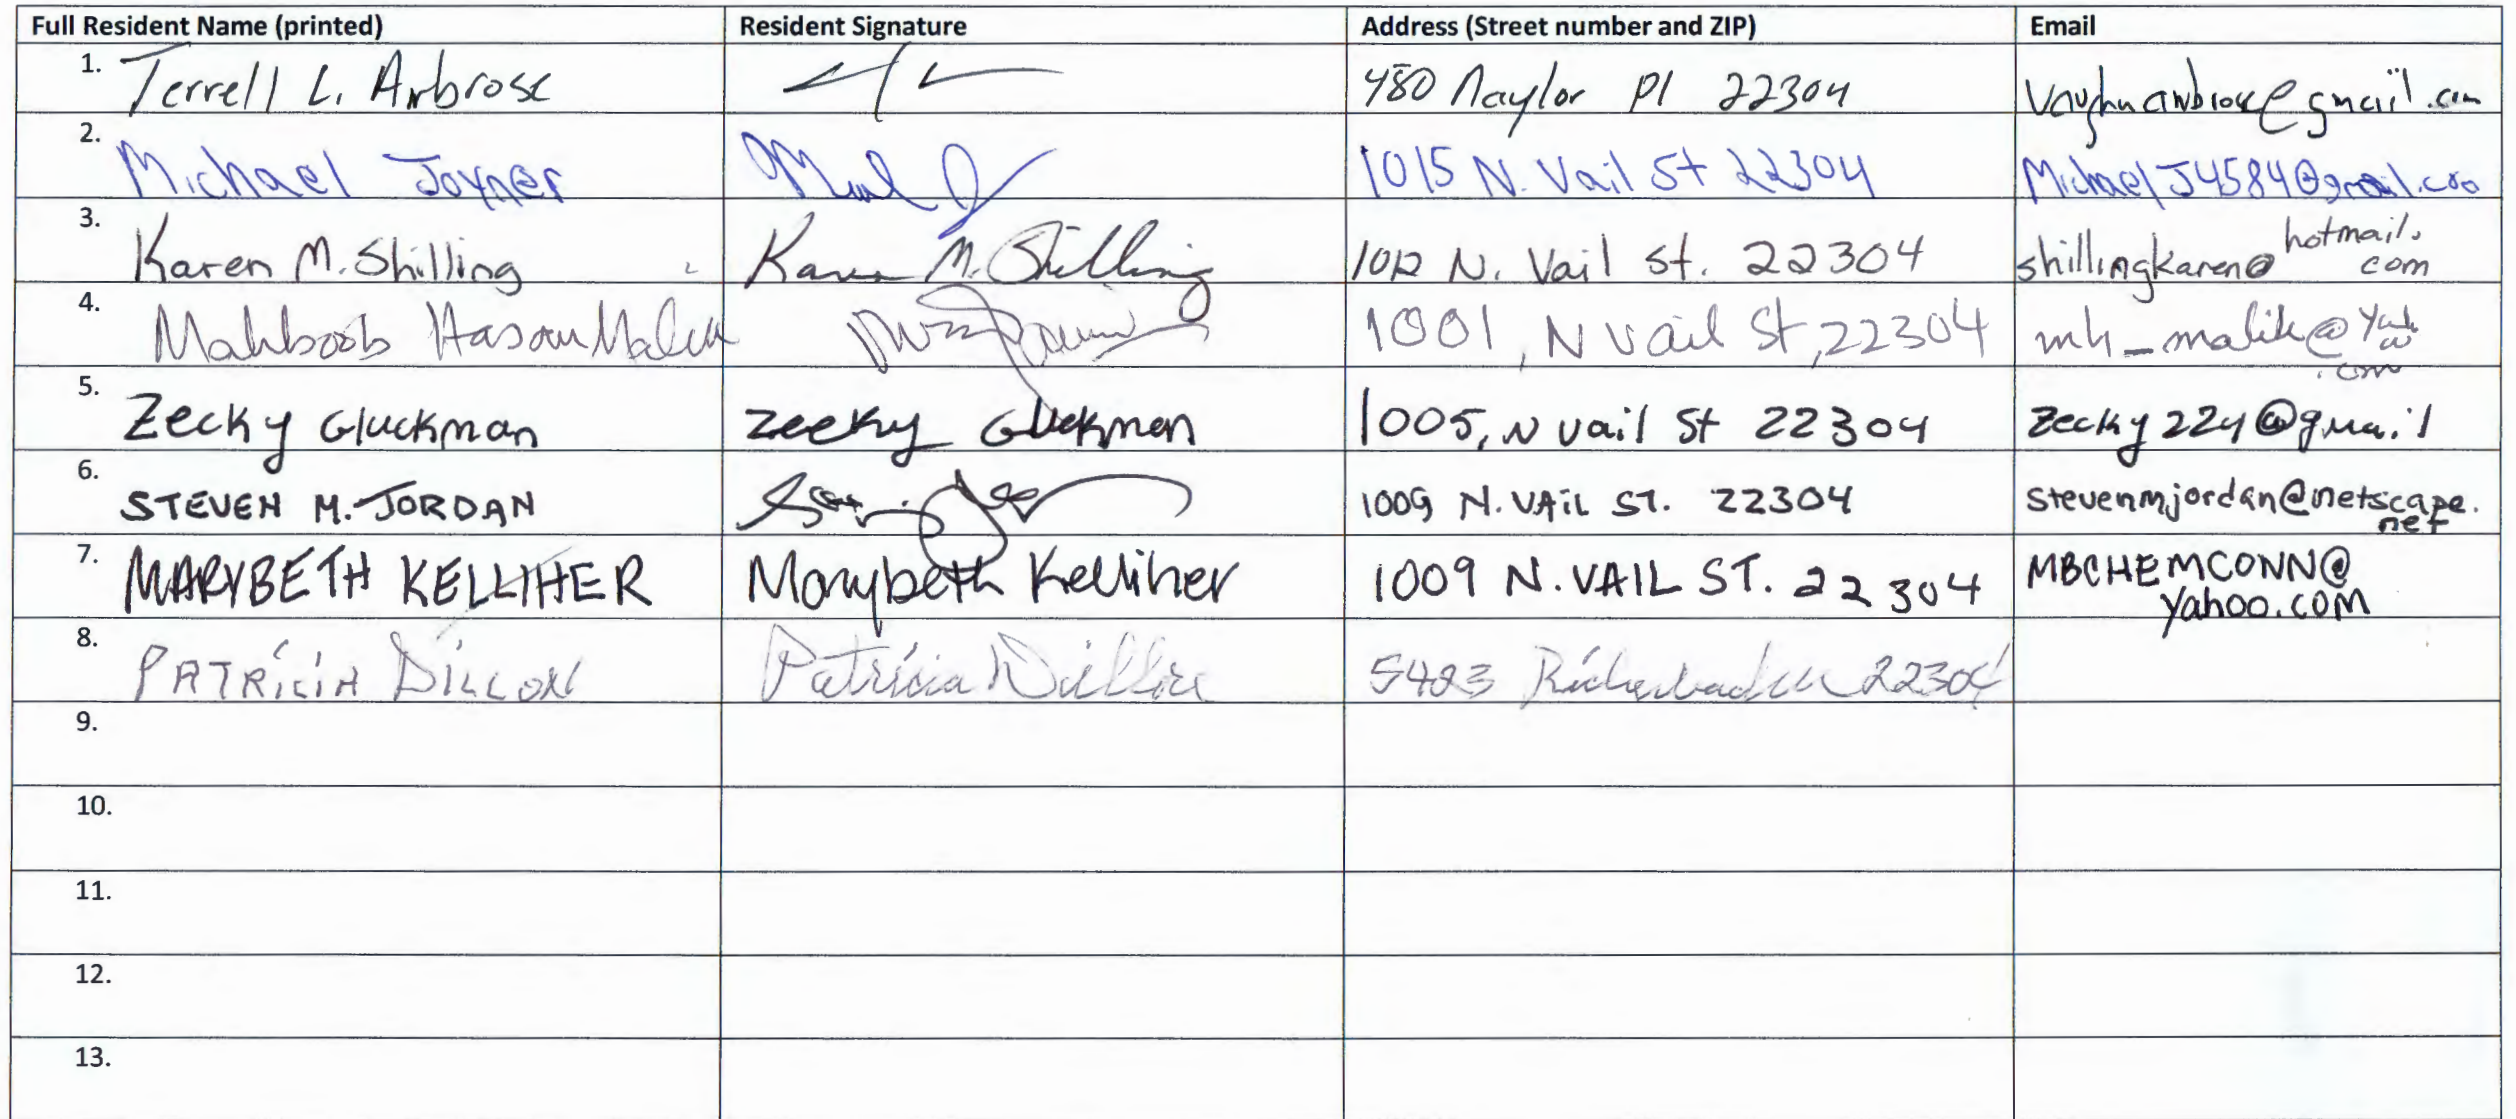 Full Resident Name (printed) Resident Signature Address (Street number and ZIP) Email
1. Terrell L. Ambrose 480 Naylor Pl 22304 @gmail.com
2. Michael Joyner 1015 N. Vail St 22304 MichaelJ4584@gmail.com
3. Karen M. Shilling Karen M. Shilling 1012 N. Vail St. 22304 shillingkaren@hotmail.
com
4. Mahboob Hasan Malik 1001, N Vail St, 22304 mh_malik@Yahoo
.com
5. Zecky Gluckman Zecky Gluckman 1005, N Vail St 22304 Zecky224@gmail
6. STEVEN M. JORDAN 1009 N. VAIL ST. 22304 stevenmjordan@netscape.
net
7. MARYBETH KELLIHER Marybeth Kelliher 1009 N. VAIL ST. 22304 MBCHEMCONN@
Yahoo.com
8. PATRICIA DILLON Patricia Dillon 5423 22304
9.
10.
11.
12.
13.